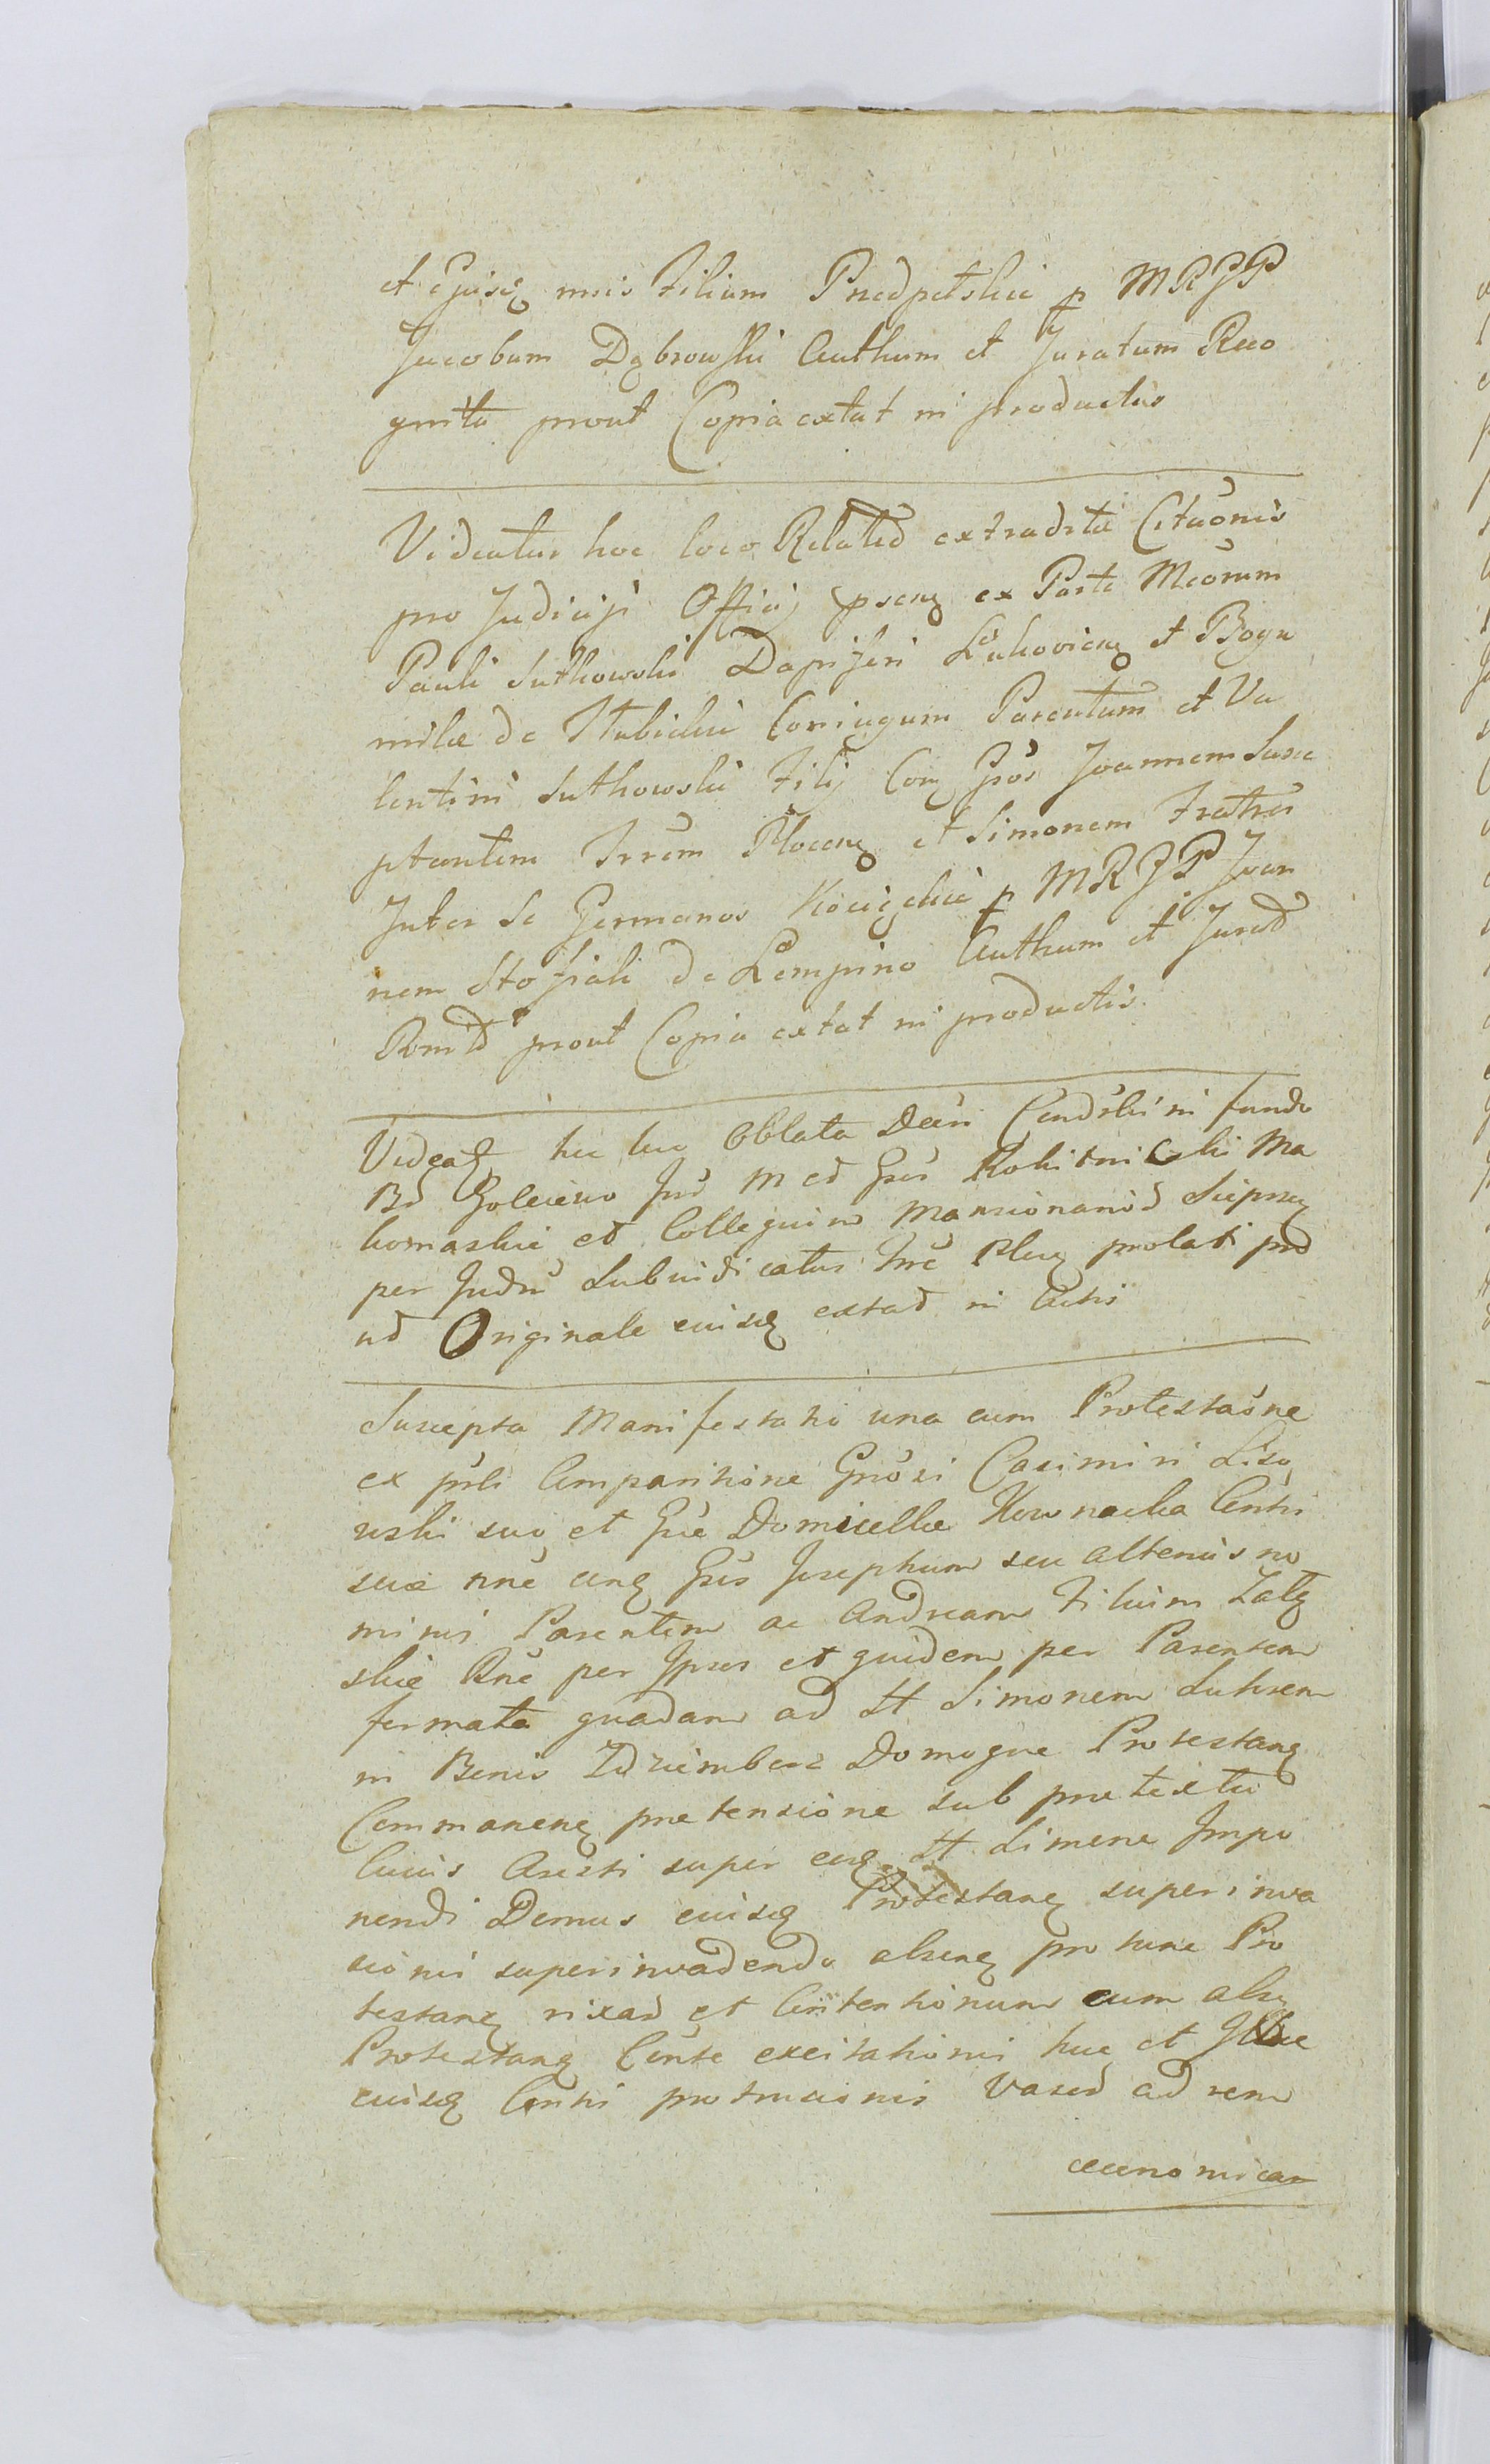 et Ejusq mris Filium Pnedpetskie p MRJP
Jacobum Dąbrowski Authum et Juratum Reco
gnita prout Copia extat in productis
Videatur hoc loco Relatio extradita Citaonis
pro Judicijs Officij psenq ex Parte Mcorum
Pauli Sutkowski Dapiferi Lukovienq et Bogu
milæ de Kubickie Coniugum Parentum et Va
lentini Sutkowskie Filij Conq Gsos Joannem Susce
ptantem Trrem Plocenq et Simonem Fratres
Inter Se Germanos Kocięckie p MRJP Joan
nem Stopiali de Lempino Authum et Jurat
Romit prout Copia extat in productis
Videatq hic loco Oblata Dein Condski in fundo
Bd Golejewo Jnd M ed Gsos Rokitnickie Ma
komaskie et Collegium Mansionariod Siepnq
per Judm Subiudicatus Tre Plcq prolati prd
ud Originale eiusq extad in Actis
Suscepta Manifestatio una cum Protestaone
ex psli Comparitione Gnosi Casimiri Liso
wski suo et Gse Domicellæ Kownacka Contis
suæ nne conq Gsos Josephum seu alterius no
minis Parentem ac Andream Filium Zalę
skie One per Ipsos et quidem per Parentem
formata quadam ad St Simonem Sutorem
in Bonis Zdziembosz Domoque Protestanq
Commanenq prætensione sub prætextu
Cuius Aresti super eoq St Simone Impo
nendi Domus eiusq Protestanq superinva
sionis superinvadendo absenq pro tunc Pro
testanq rixad et Contentionum cum absq
Protestanq Conte excitationis huc et Illuc
eiusq Contis protrusionis Vasod ad rem
œconomicam